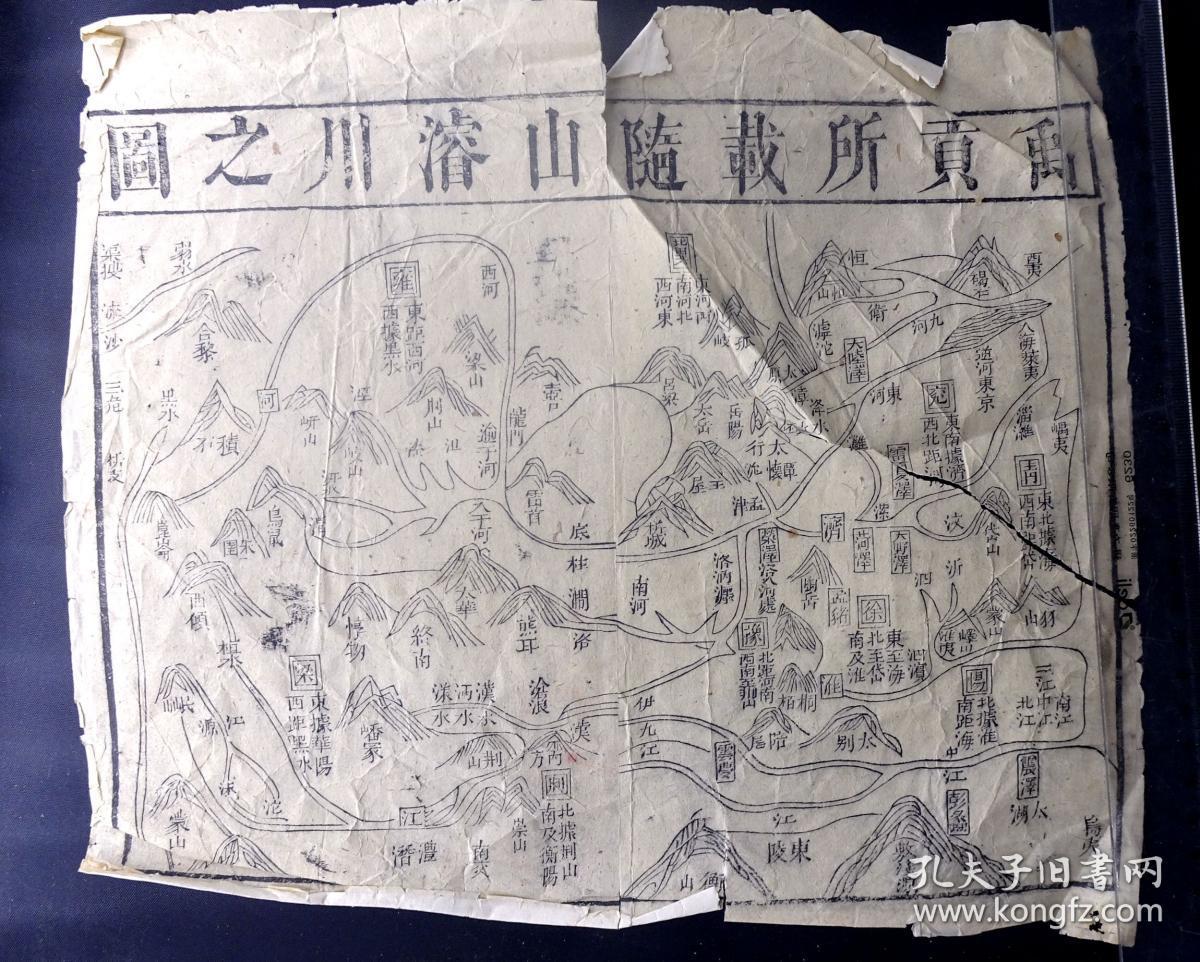 禹貢所載隨山濬川之圖
酉夷
碣石
恒
恒山
衛
九河
滹沱
大陸澤
逆河東京
兗
東南據濟
西北距河
東河
嵎夷
青
東北據海
汶
岱山
沂
泗
蒙山
羽山
嶧山
淮夷
徐
東至海
北至岱
南及淮
大野澤
菏澤
濟
漯
灉
雷夏澤
冀
東河西
南河北
西河東
呂梁
太岳
岳陽
太行
覃懷
王屋
孟津
析城
洛汭
南河
豫
北距河南
淮
桐柏
陪尾
大別
揚
北據淮
南距海
三江
南江
中江
北江
震澤
太湖
彭蠡
敷淺原
東陵
江
雲夢
九江
伊
衡山
西河
雍
東距西河
西據黑水
梁山
壺口
龍門
荊山
岐山
岍山
河
弱水
渠搜
流沙
合黎
三危
黑水
積石
鳥鼠
朱圉
西傾
崑崙
渭
漆
沮
雷首
底柱
澗
洛
太華
熊耳
終南
惇物
梁
東據華陽
西距黑水
嶓冢
漾水
沔水
漢水
滄浪
漢
荊山
內方
荊
北據荊山
南及衡陽
江
澧
潛
岷
江源
沱
蒙山
孔夫子旧书网
www.kongfz.com